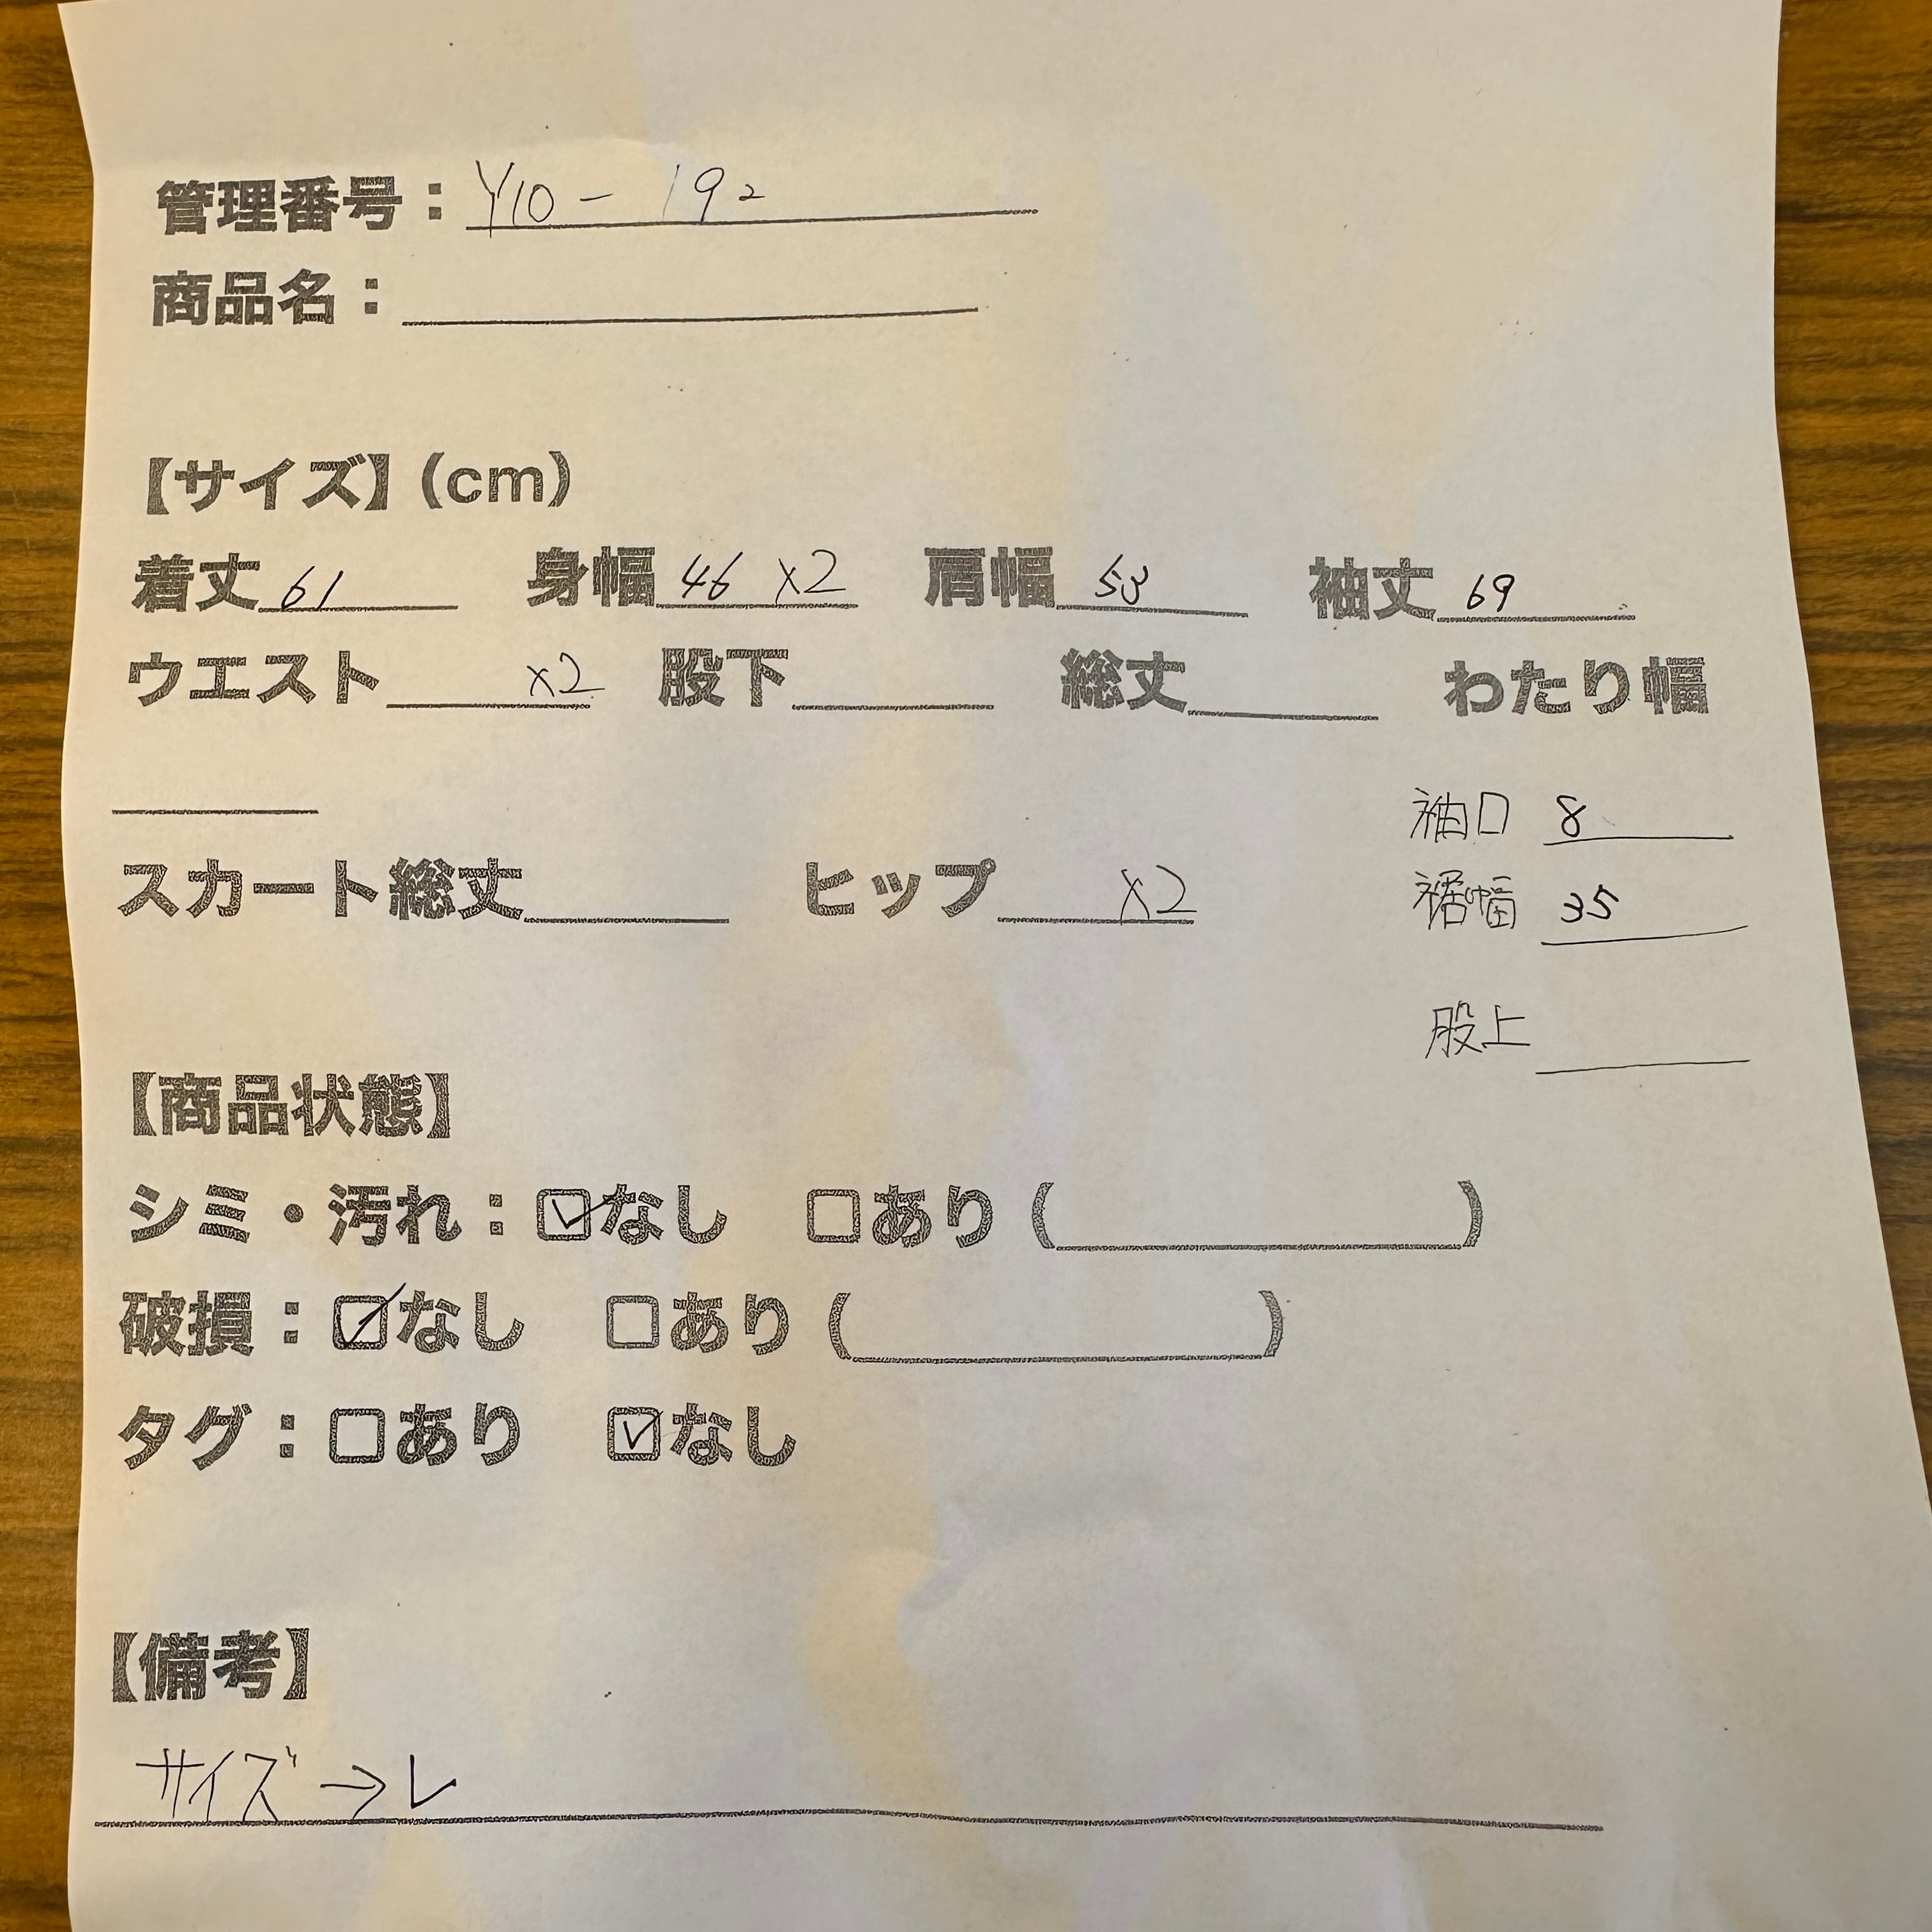 管理番号：Y10－192
商品名：
【サイズ】(cm)
着丈 61 身幅 46 ×2 肩幅 53 袖丈 69
ウエスト ×2 股下 総丈 わたり幅
袖口 8
スカート総丈 ヒップ ×2
裾幅 35
股上
【商品状態】
シミ・汚れ：☑なし □あり( )
破損：☑なし □あり( )
タグ：□あり ☑なし
【備考】
サイズ→L